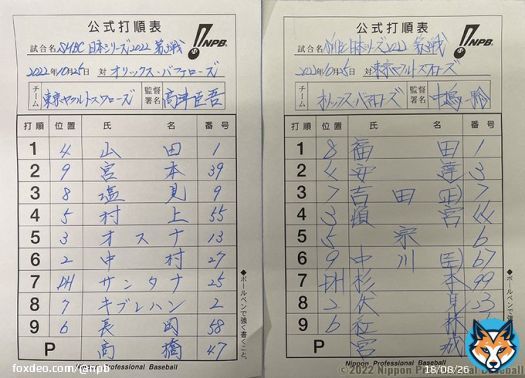 公式打順表
NPB
試合名 SMBC 日本シリーズ2022 第3戦
2022年10月25日 対 オリックス・バファローズ
チーム 東京ヤクルトスワローズ 監督署名 高津臣吾
打順 位置 氏 名 番号
1 4 山田 1
2 9 宮本 39
3 8 塩見 9
4 5 村上 55
5 3 オスナ 13
6 2 中村 27
7 DH サンタナ 25
8 7 キブレハン 2
9 6 長岡 58
P 高橋 47
●ボールペンで強く書くこと。
Nippon Professional Baseball
公式打順表
NPB
試合名 SMBC 日本シリーズ2022 第3戦
2022年10月25日 対 東京ヤクルトスワローズ
チーム オリックス・バファローズ 監督署名
打順 位置 氏 名 番号
1 8 福田 1
2 4 安達 3
3 7 吉田(正) 7
4 3 頓宮 44
5 5 宗 6
6 9 中川(圭) 67
7 DH 杉本 99
8 2 伏見 23
9 6 紅林
P 宮城
●ボールペンで強く書くこと。
Nippon Professional Baseball
foxdeo.com/@npb
©2022 Nippon Professional Baseball
18/08/26